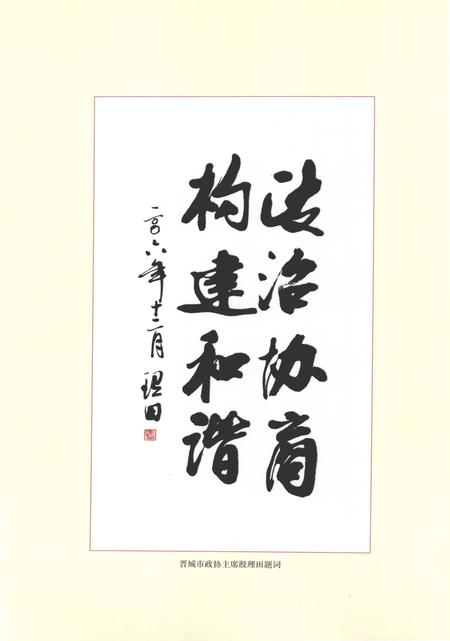 法治协商
构建和谐
二〇〇六年十二月 理田
晋城市政协主席殷理田题词